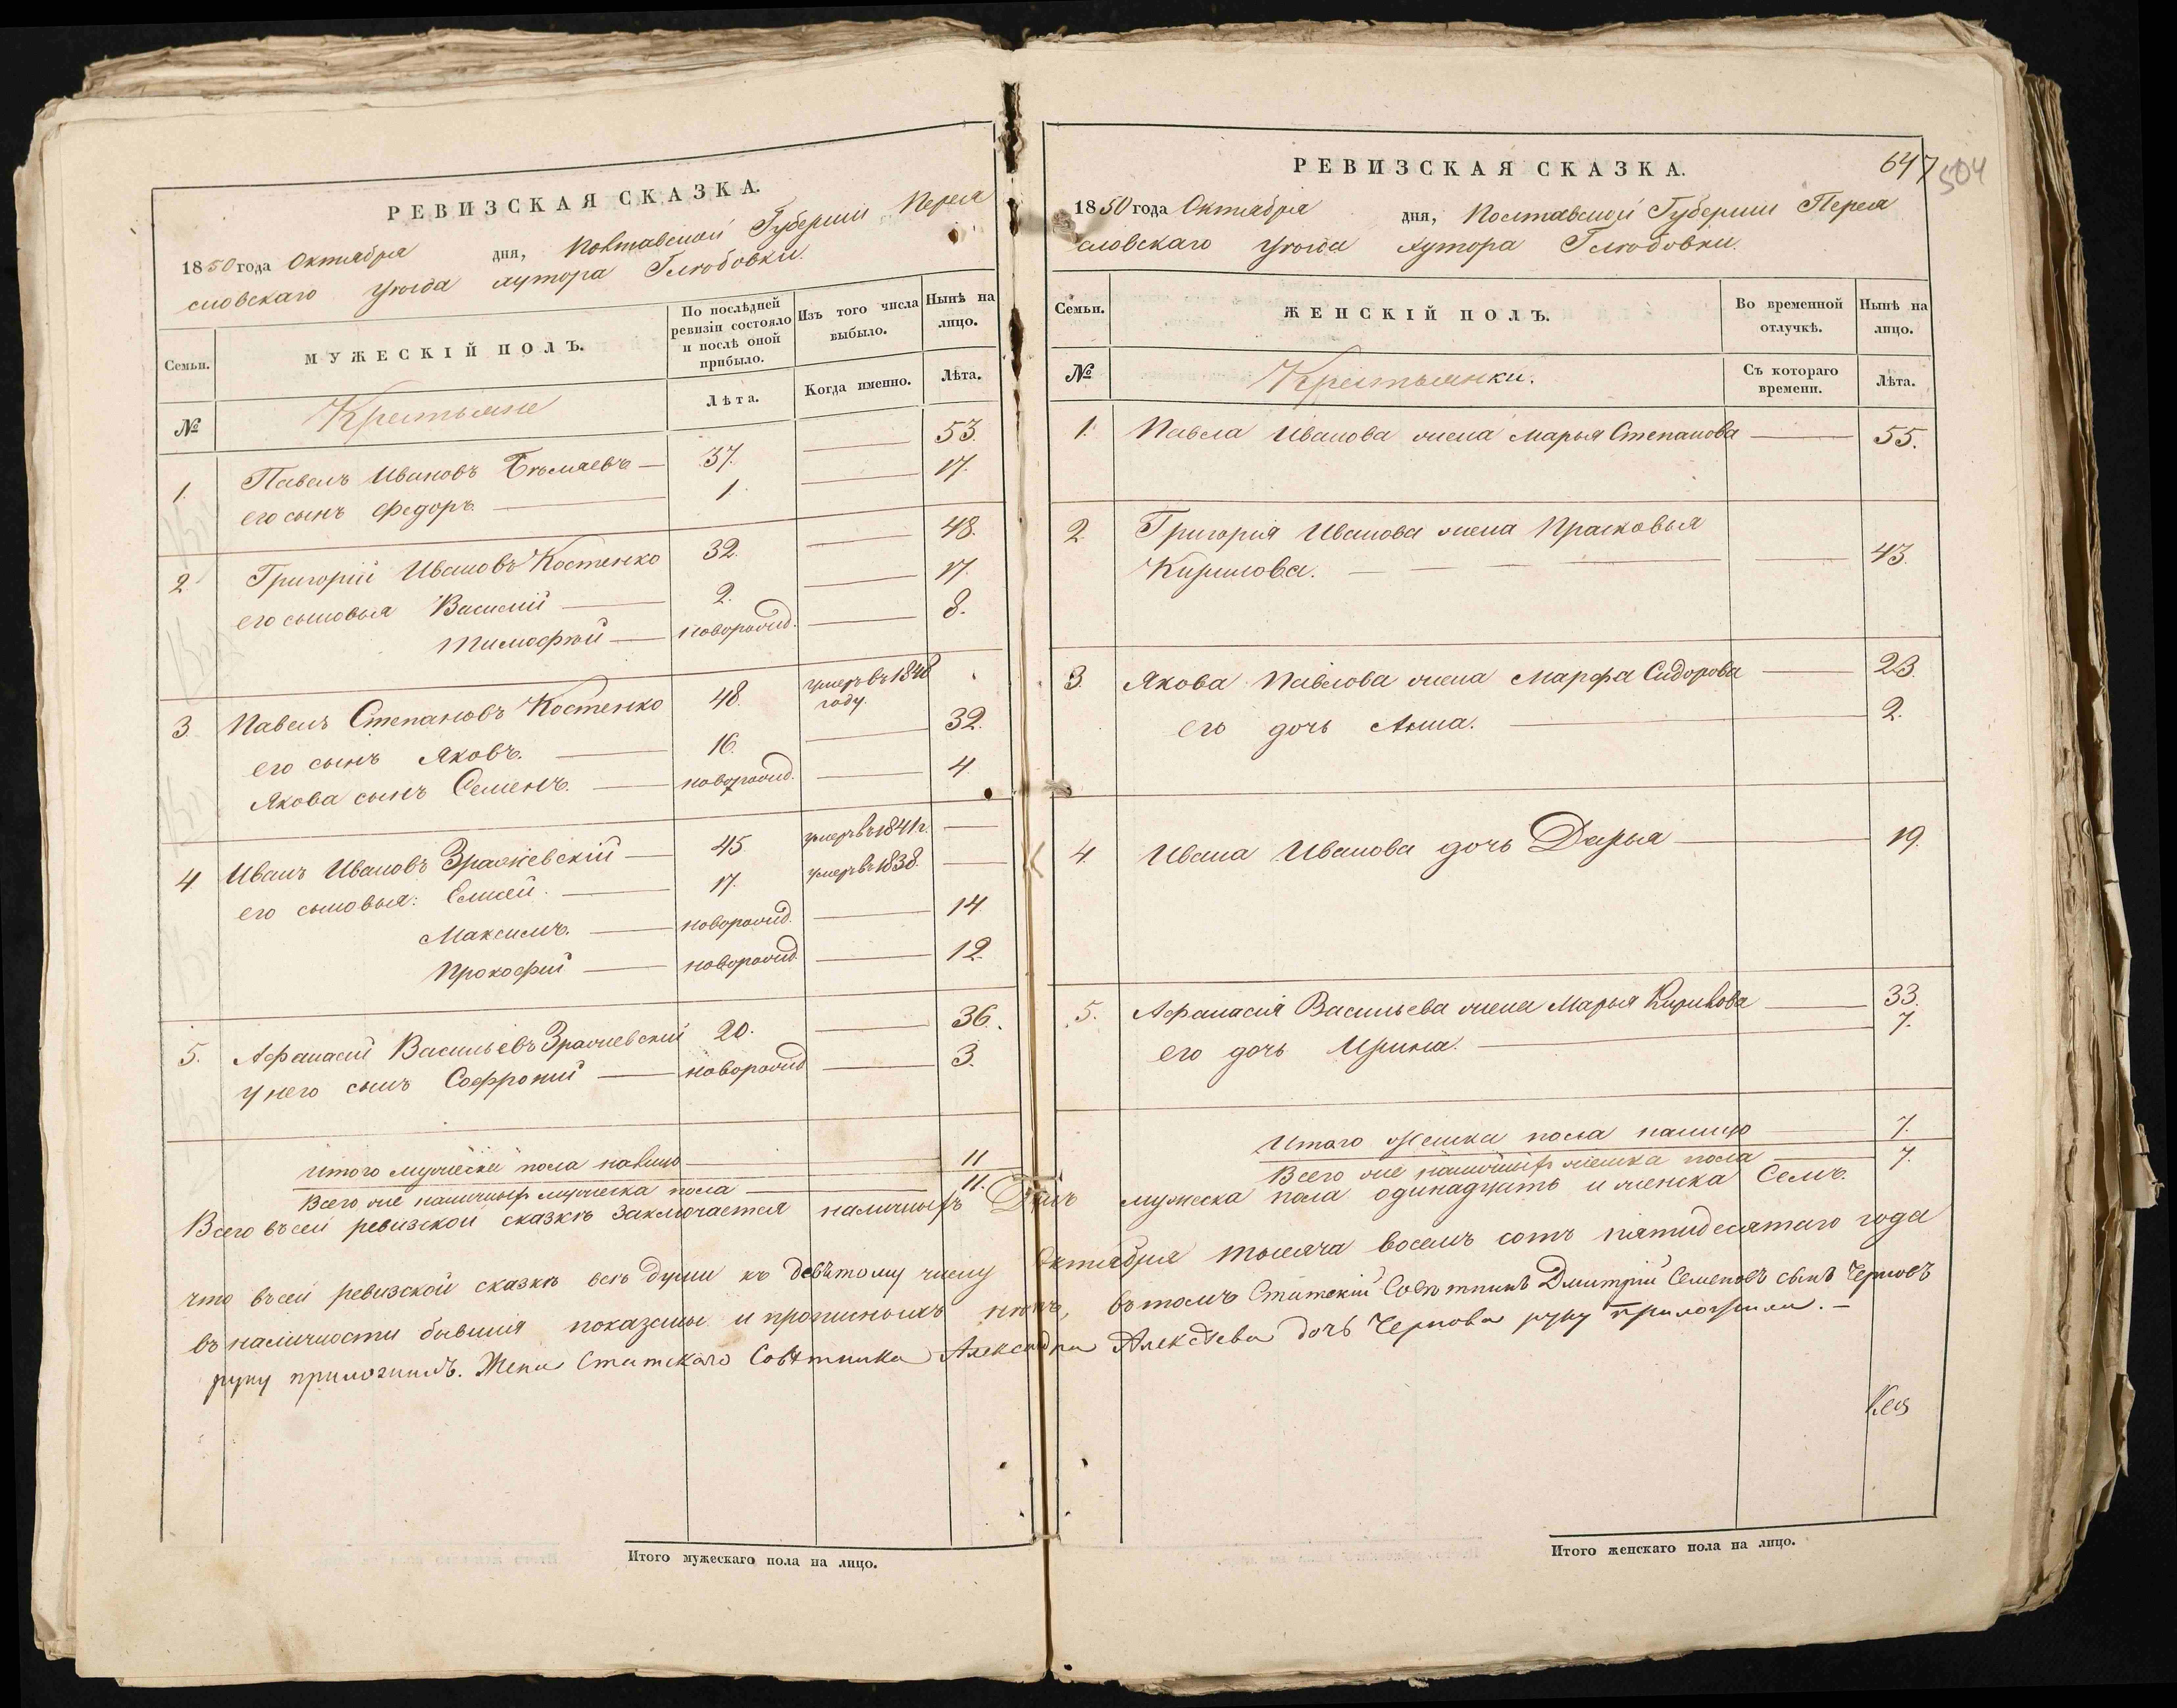 РЕВИЗСКАЯ СКАЗКА.
1850 года Октября дня, Полтавской Губернии Перея
словскаго Уѣзда хутора
Семьи.
МУЖЕСКІЙ ПОЛЪ.
По послѣдней ревизіи состояло и послѣ оной прибыло.
Изъ того числа выбыло.
Нынѣ на лицо.
№
Крестьяне
Лѣта.
Когда именно.
Лѣта.
1. Павелъ Ивановъ — 37. — 53.
его сынъ Федоръ. — 1. — 17.
2 Григорій Ивановъ Костенко 32. — 48.
его сыновья Василій — 2. — 17.
Тимофѣй — новорожд. — 8.
3. Павелъ Степановъ Костенко 48. умеръ въ 1848 году.
его сынъ Яковъ. — 16. — 32.
Якова сынъ Семенъ. — новорожд. — 4.
4 Иванъ Ивановъ Зражевскій — 45 умеръ въ 1841 г. —
его сыновья: Елисей. — 17. умеръ въ 1838. —
Максимъ. — новорожд. — 14.
Прокофий — новорожд. — 12.
5. Афанасій Васильевъ Зражевскій 20. — 36.
у него сынъ Софроний — новорожд — 3.
Итого мужеска пола налицо — 11
Всего же наличныхъ мужеска пола — 11.
РЕВИЗСКАЯ СКАЗКА.
647
504
1850 года Октября дня, Полтавской Губернии Перея
словскаго Уѣзда Хутора
Семьи.
ЖЕНСКІЙ ПОЛЪ.
Во временной отлучкѣ.
Нынѣ на лицо.
№
Крестьянки.
Съ котораго времени.
Лѣта.
1. Павла Иванова жена Марья Степанова — 55.
2. Григорія Иванова жена Прасковья
Кирилова. — 43.
3. Якова Павлова жена Марфа Сидорова — 23.
его дочь Анна. — 2.
4 Ивана Иванова дочь Дарья — 19.
5. Афанасія Васильева жена Марья Кирилова — 33.
его дочь Ирина. — 7.
Итого женска пола налицо — 7.
Всего же наличныхъ женска пола — 7.
Всего въ сей ревизской сказкѣ заключается наличныхъ Душъ мужеска пола одинадцать и женска Семь.
что въ сей ревизской сказкѣ всѣ души къ девятому числу Октября тысяча восемь сотъ пятидесятаго года
въ наличности бывшія показаны и прописныхъ нѣтъ, въ томъ Статскій Совѣтникъ Дмитрій Семеновъ сынъ Черновъ
руку приложилъ. Жена Статскаго Совѣтника Александра Алексѣева дочь Чернова руку приложила. —
Итого мужескаго пола на лицо.
Итого женскаго пола на лицо.